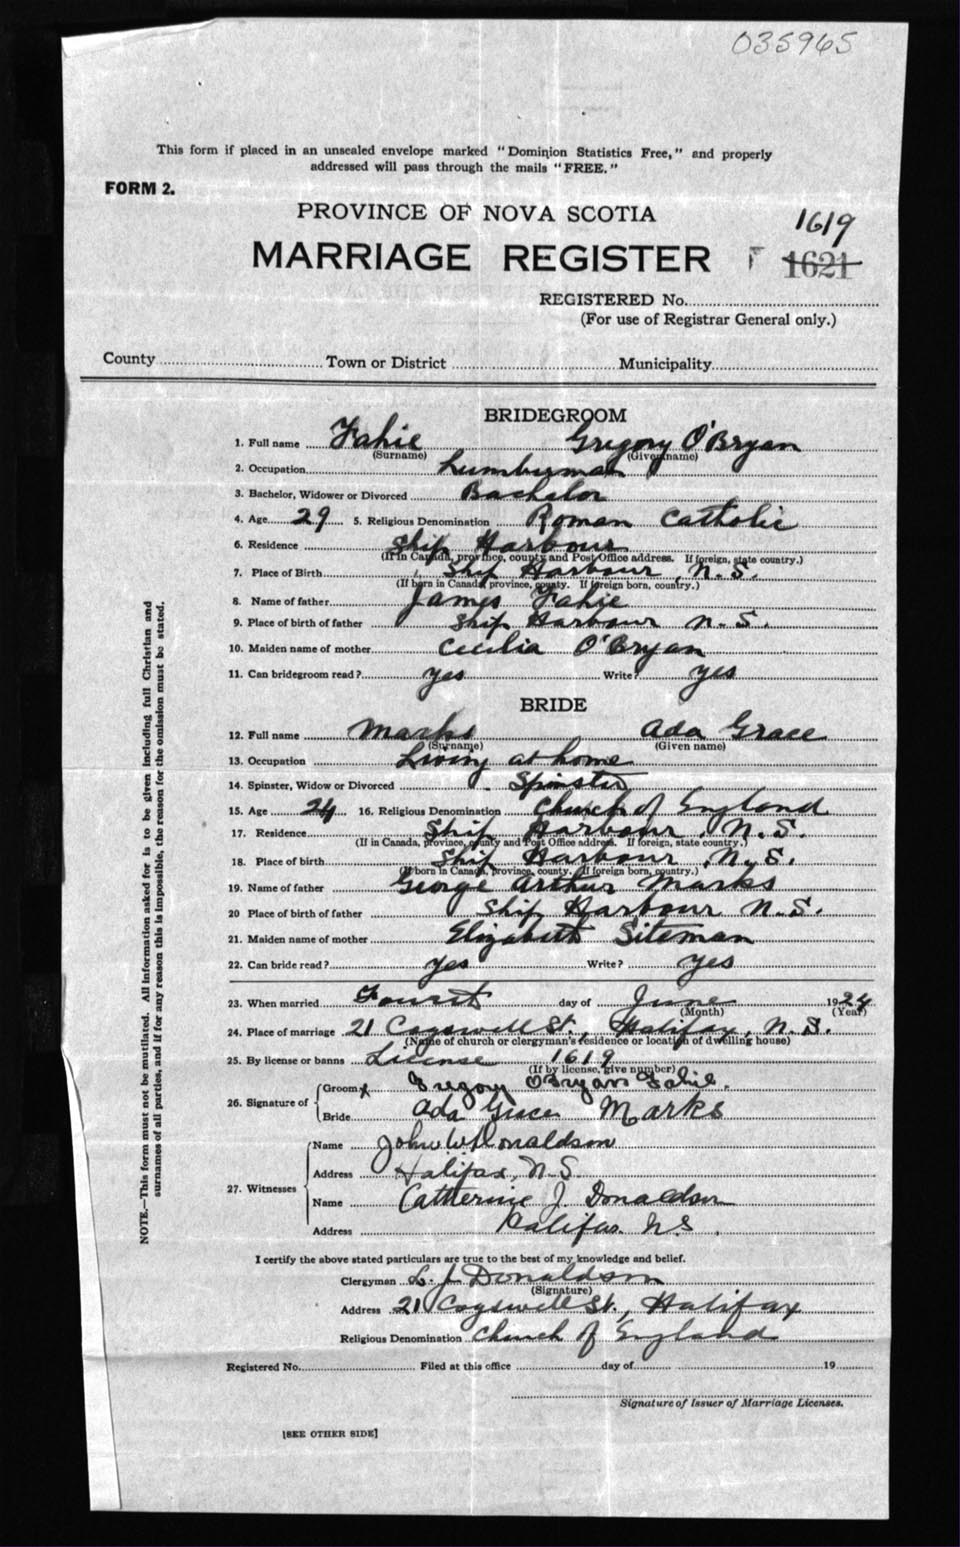 035965
This form if placed in an unsealed envelope marked "Dominion Statistics Free," and properly
addressed will pass through the mails "FREE."
FORM 2.
PROVINCE OF NOVA SCOTIA
1619
MARRIAGE REGISTER 1621
REGISTERED No.
(For use of Registrar General only.)
County Town or District Municipality
BRIDEGROOM
1. Full name Fahie Gregory O'Bryan
(Surname) (Given name)
2. Occupation Lumberman
3. Bachelor, Widower or Divorced Bachelor
4. Age 29 5. Religious Denomination Roman Catholic
6. Residence Ship Harbour
(If in Canada, province, county and Post Office address. If foreign, state country.)
7. Place of Birth Ship Harbour, N.S.
(If born in Canada, province, county. If foreign born, country.)
8. Name of father James Fahie
9. Place of birth of father Ship Harbour N.S.
10. Maiden name of mother Cecilia O'Bryan
11. Can bridegroom read? yes Write? yes
BRIDE
12. Full name Marks Ada Grace
(Surname) (Given name)
13. Occupation Living at home
14. Spinster, Widow or Divorced Spinster
15. Age 24 16. Religious Denomination Church of England
17. Residence Ship Harbour, N.S.
(If in Canada, province, county and Post Office address. If foreign, state country.)
18. Place of birth Ship Harbour, N.S.
(If born in Canada, province, county. If foreign born, country.)
19. Name of father George Arthur Marks
20 Place of birth of father Ship Harbour N.S.
21. Maiden name of mother Elizabeth Siteman
22. Can bride read? yes Write? yes
23. When married Fourth day of June 1924
(Month) (Year)
24. Place of marriage 21 Cogswell St., Halifax, N.S.
(Name of church or clergyman's residence or location of dwelling house)
25. By license or banns License 1619
(If by license, give number)
26. Signature of Groom x Gregory O'Bryan Fahie.
Bride Ada Grace Marks
27. Witnesses Name John W Donaldson
Address Halifax, N.S.
Name Catherine J. Donaldson
Address Halifax. N.S.
I certify the above stated particulars are true to the best of my knowledge and belief.
Clergyman L. J. Donaldson
(Signature)
Address 21 Cogswell St., Halifax
Religious Denomination Church of England
Registered No. Filed at this office day of 19
Signature of Issuer of Marriage Licenses.
[SEE OTHER SIDE]
NOTE.—This form must not be mutilated. All information asked for is to be given including full Christian and
surnames of all parties, and if for any reason this is impossible, the reason for the omission must be stated.